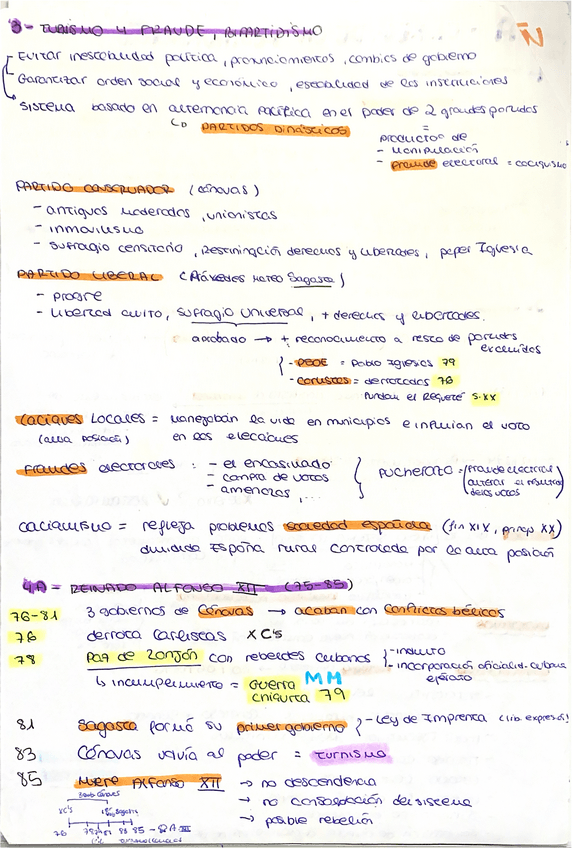 3- TURNISMO Y FRAUDE, BIPARTIDISMO
Ñ
Evitar inestabilidad política, pronunciamientos, cambios de gobierno
Garantizar orden social y económico, estabilidad de las instituciones
Sistema basado en alternancia pacífica en el poder de 2 grandes partidos
PARTIDOS DINÁSTICOS
=
productos de
- Manipulación
- Fraude electoral = caciquismo
PARTIDO CONSERVADOR (Cánovas)
- antiguos moderados, unionistas
- inmovilismo
- Sufragio censitario, Restricción derechos y libertades, paper Iglesia
PARTIDO LIBERAL (Práxedes Mateo Sagasta)
- progre
- Libertad culto, Sufragio Universal, + derechos y libertades.
aprobado → + reconocimiento a resto de partidos
excluidos
- PSOE = Pablo Iglesias 79
- carlistas = derrotados 76
fundan el Requeté s.XX
Caciques Locales = manejaban la vida en municipios e influían el voto
(alta posición) en las elecciones
Fraudes electorales : - el encasillado
- compra de votos
- amenazas, ...
PUCHERAZO = (fraude electoral
alterar el
de los votos)
caciquismo = refleja problemas sociedad española (fin XIX, princp XX)
dividida España rural controlada por la alta posición
4A - REINADO ALFONSO XII (75-85)
76-81 3 gobiernos de Cánovas → acaban con conflictos bélicos
76 derrota Carlistas XC's
78 Paz de Zanjón con rebeldes cubanos { - indulto
- incorporación oficiales cubana
ejército
↳ incumplimiento = Guerra MM
chiquita 79
81 Sagasta formó su primer gobierno } - Ley de Imprenta (lib. expresión)
83 Cánovas volvía al poder = turnismo
85 Muere Alfonso XII → no descendencia
→ no consolidación del sistema
→ posible rebelión
XC's
76 78 79 81 83 85